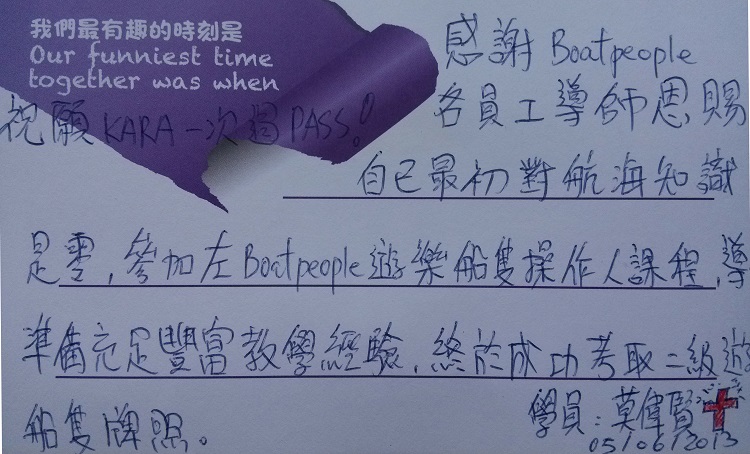 我們最有趣的時刻是
Our funniest time
together was when
感謝 Boatpeople
各員工導師恩賜
祝願 KARA 一次過 PASS!
自己最初對航海知識
是零,參加左Boatpeople遊樂船隻操作人課程,導
準備充足豐富教學經驗,終於成功考取二級遊
船隻牌照。
學員:莫偉賢
05/06/2013